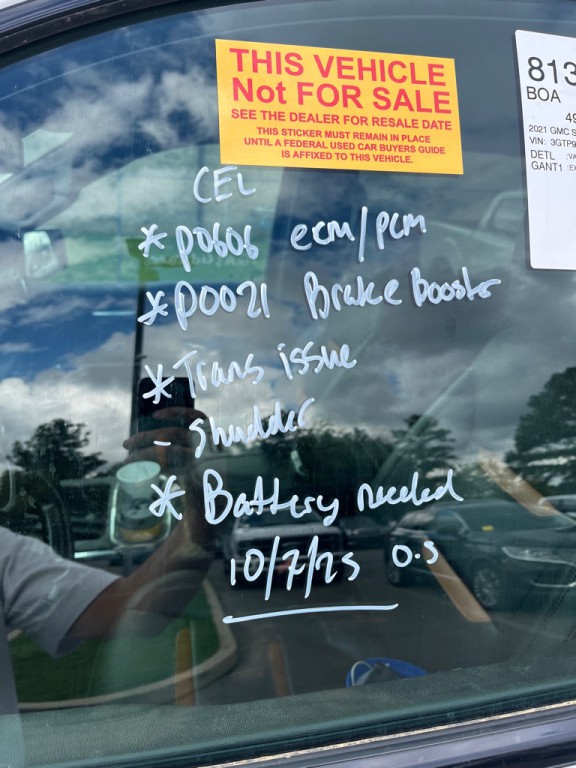 THIS VEHICLE
Not FOR SALE
SEE THE DEALER FOR RESALE DATE
THIS STICKER MUST REMAIN IN PLACE
UNTIL A FEDERAL USED CAR BUYERS GUIDE
IS AFFIXED TO THIS VEHICLE.
813
BOA
49
2021 GMC S
VIN: 3GTP9
DETL :VA
GANT1 :EX
CEL
* P0606 ecm/pcm
* P0021 Brake Booster
* Trans issue
- shudder
* Battery needed
10/7/25 O.S